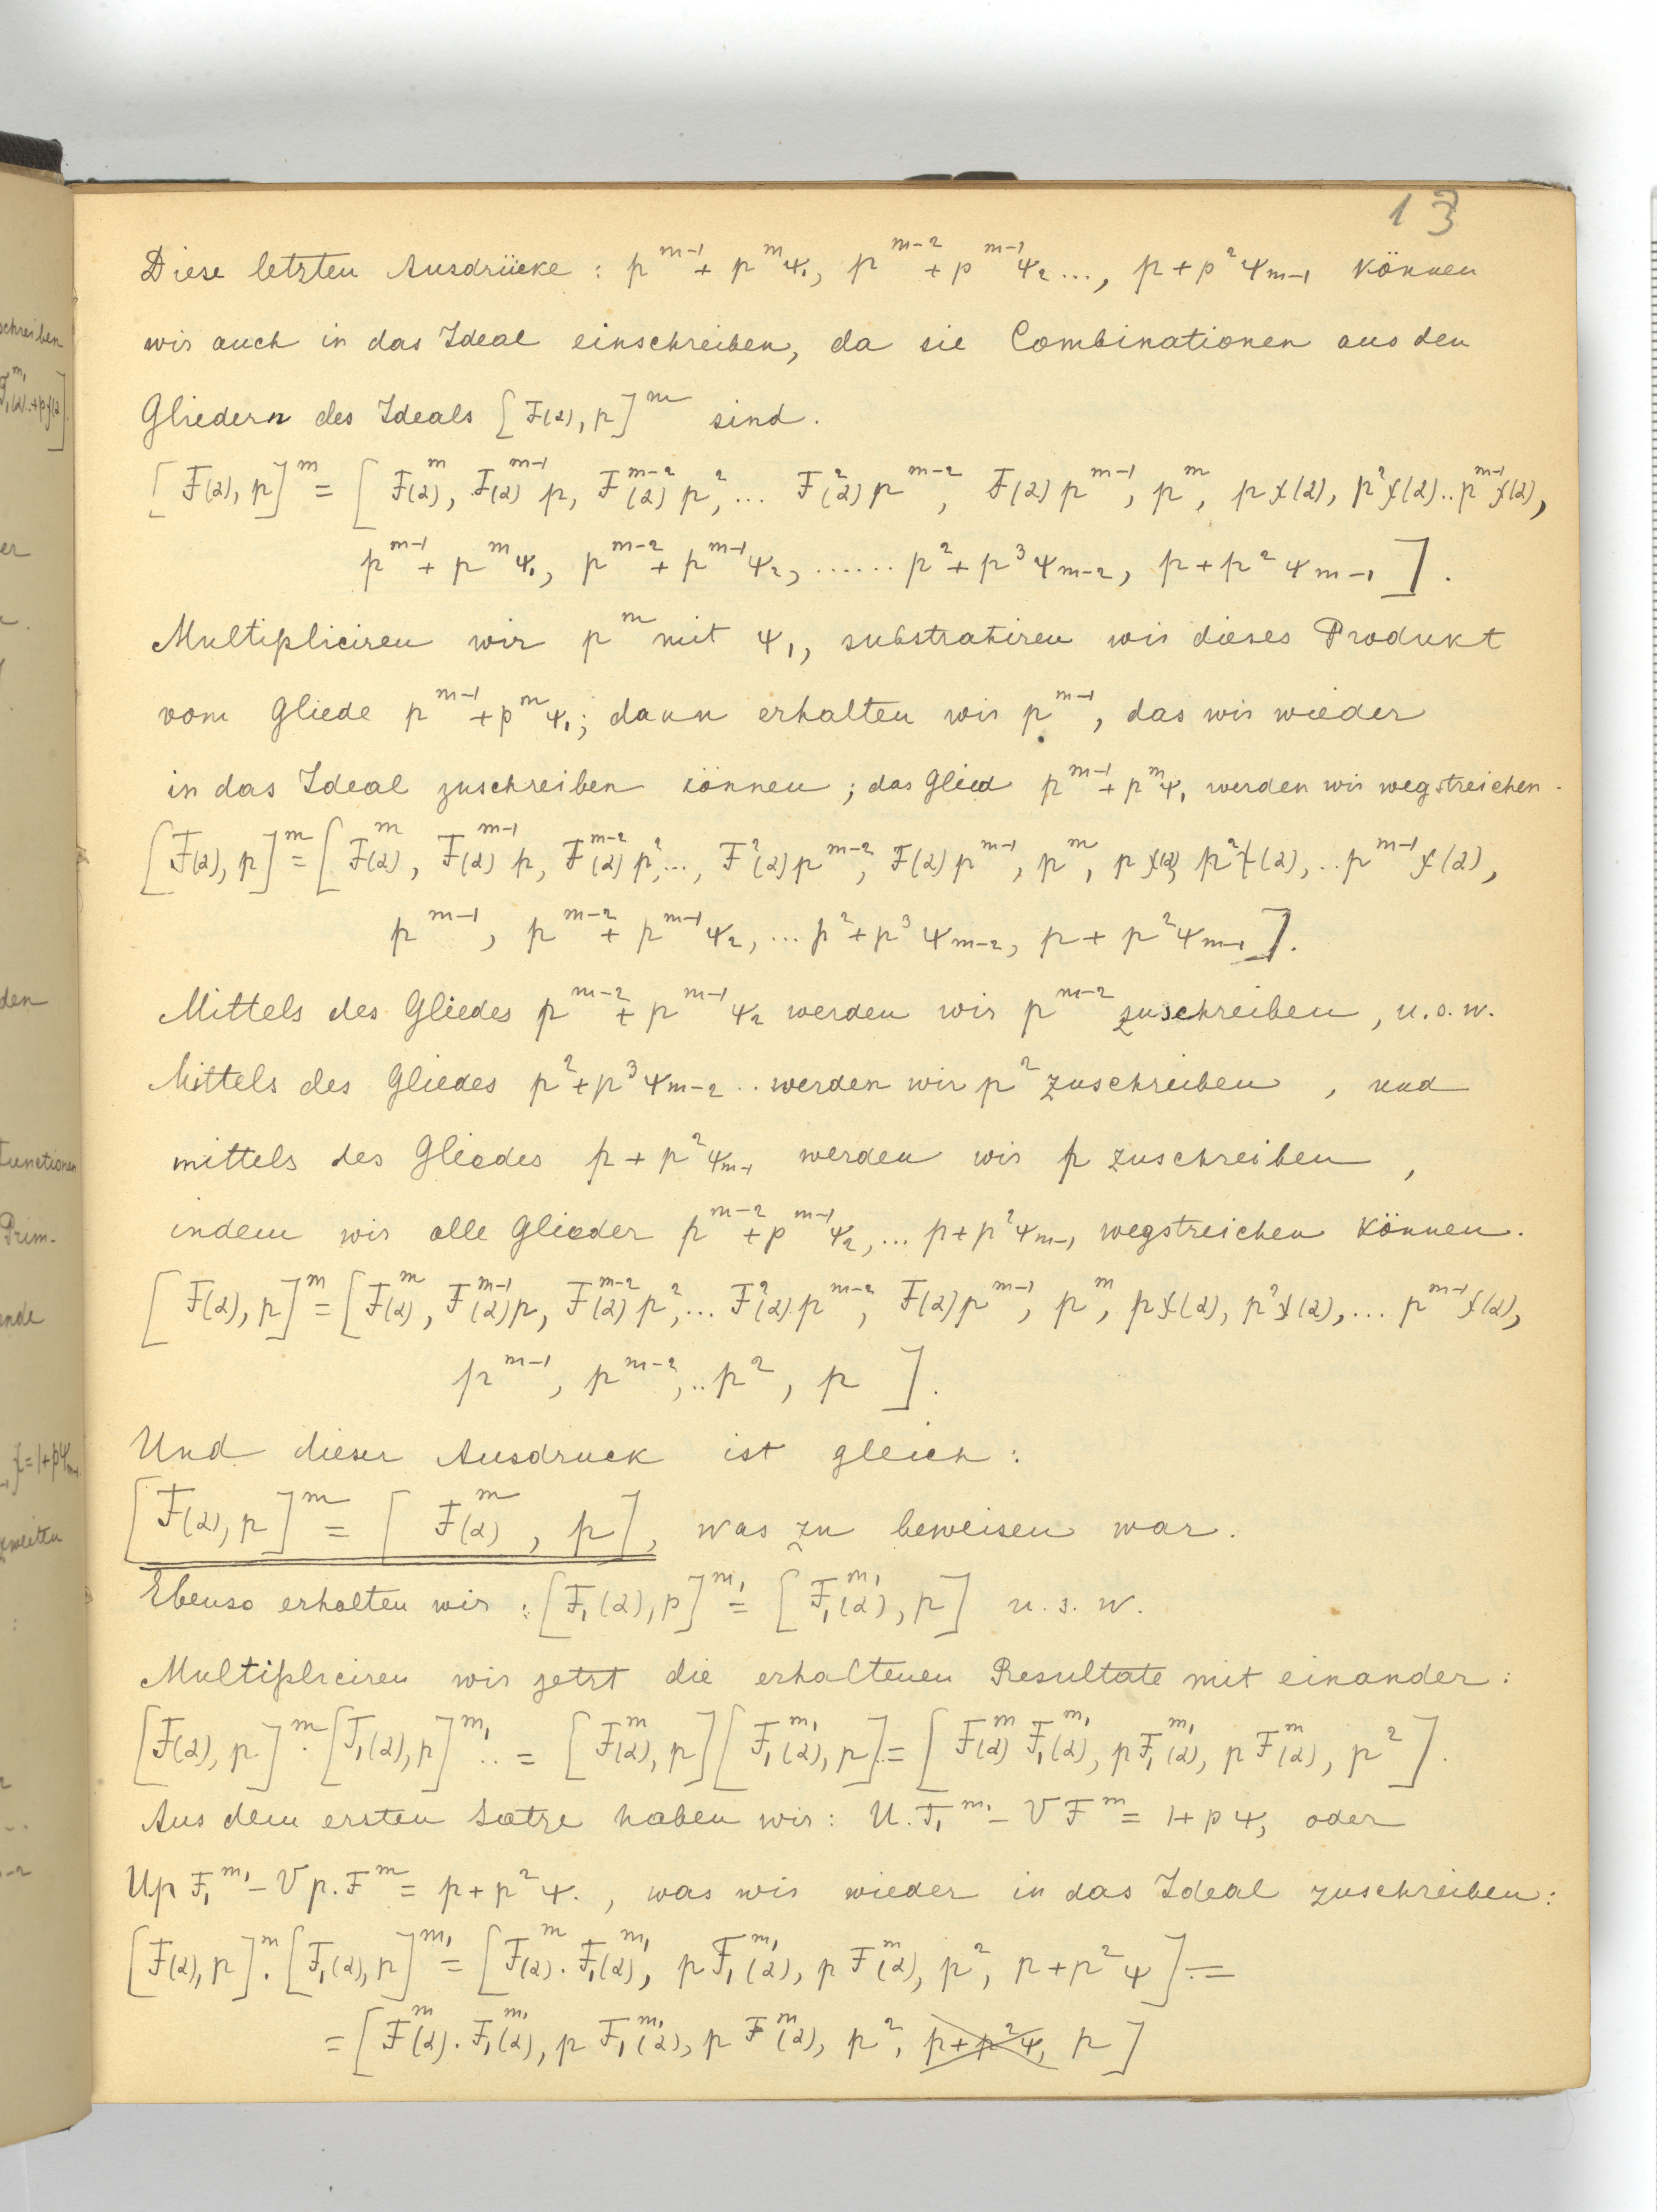 13
Diese letzten Ausdrücke : p^{m-1} + p^m ψ_1, p^{m-2} + p^{m-1} ψ_2 ..., p + p^2 ψ_{m-1} können
wir auch in das Ideal einschreiben, da sie Combinationen aus den
Gliedern des Ideals [F(α), p]^m sind.
[F(α), p]^m = [F^m(α), F^{m-1}(α) p, F^{m-2}(α) p^2, ... F^2(α) p^{m-2}, F(α) p^{m-1}, p^m, p χ(α), p^2 χ(α) .. p^{m-1} χ(α),
p^{m-1} + p^m ψ_1, p^{m-2} + p^{m-1} ψ_2, ...... p^2 + p^3 ψ_{m-2}, p + p^2 ψ_{m-1} ].
Multipliciren wir p^m mit ψ_1, substrahiren wir dieses Produkt
vom Gliede p^{m-1} + p^m ψ_1; dann erhalten wir p^{m-1}, das wir wieder
in das Ideal zuschreiben können ; das Glied p^{m-1} + p^m ψ_1 werden wir wegstreichen.
[F(α), p]^m = [F^m(α), F^{m-1}(α) p, F^{m-2}(α) p^2, ..., F^2(α) p^{m-2}, F(α) p^{m-1}, p^m, p χ(α), p^2 χ(α), .. p^{m-1} χ(α),
p^{m-1}, p^{m-2} + p^{m-1} ψ_2, ... p^2 + p^3 ψ_{m-2}, p + p^2 ψ_{m-1} ].
Mittels des Gliedes p^{m-2} + p^{m-1} ψ_2 werden wir p^{m-2} zuschreiben, u.s.w.
Mittels des Gliedes p^2 + p^3 ψ_{m-2} .. werden wir p^2 zuschreiben , und
mittels des Gliedes p + p^2 ψ_{m-1} werden wir p zuschreiben ,
indem wir alle Glieder p^{m-2} + p^{m-1} ψ_2, ... p + p^2 ψ_{m-1} wegstreichen können.
[F(α), p]^m = [F^m(α), F^{m-1}(α) p, F^{m-2}(α) p^2, ... F^2(α) p^{m-2}, F(α) p^{m-1}, p^m, p χ(α), p^2 χ(α), ... p^{m-1} χ(α),
p^{m-1}, p^{m-2}, .. p^2, p ].
Und dieser Ausdruck ist gleich :
[F(α), p]^m = [F^m(α), p], was zu beweisen war.
Ebenso erhalten wir : [F_1(α), p]^{m_1} = [F_1^{m_1}(α), p] u.s.w.
Multipliciren wir jetzt die erhaltenen Resultate mit einander :
[F(α), p]^m . [F_1(α), p]^{m_1} .. = [F^m(α), p][F_1^{m_1}(α), p] .. = [F^m(α) F_1^{m_1}(α), p F_1^{m_1}(α), p F^m(α), p^2].
Aus dem ersten Satze haben wir : U. F_1^{m_1} - V F^m = 1 + p ψ, oder
U p F_1^{m_1} - V p. F^m = p + p^2 ψ. , was wir wieder in das Ideal zuschreiben :
[F(α), p]^m . [F_1(α), p]^{m_1} = [F^m(α) . F_1^{m_1}(α), p F_1^{m_1}(α), p F^m(α), p^2, p + p^2 ψ ] . =
= [F^m(α) . F_1^{m_1}(α), p F_1^{m_1}(α), p F^m(α), p^2, p + p^2 ψ, p ]